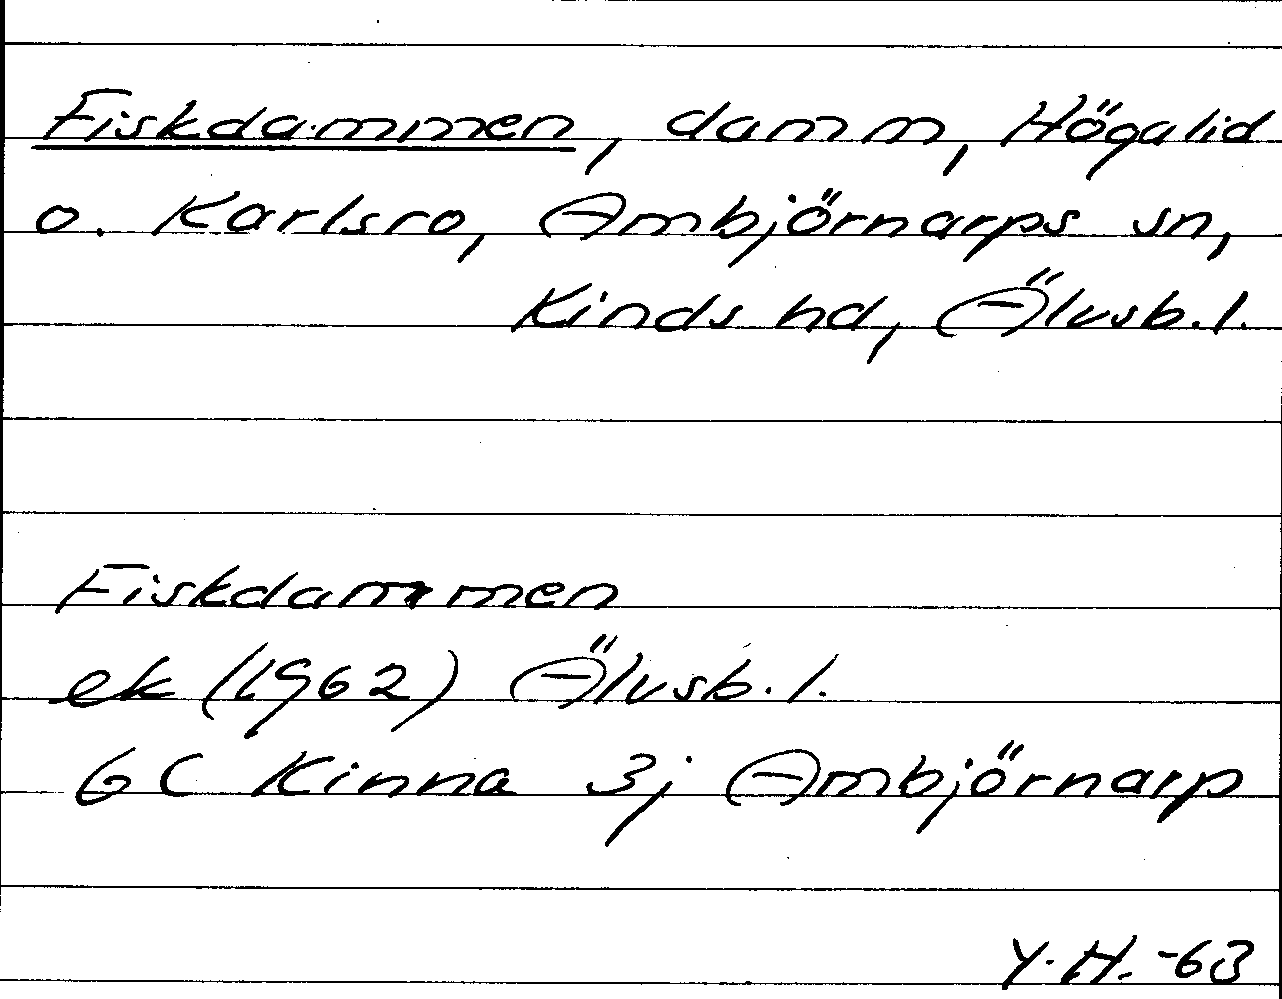 Fiskdammen, damm, Högalid
o. Karlsro, Ambjörnarps sn,
Kinds hd, Älvsb.l.
Fiskdammen
ek (1962) Älvsb.l.
6C Kinna 3j Ambjörnarp
Y.H.-63